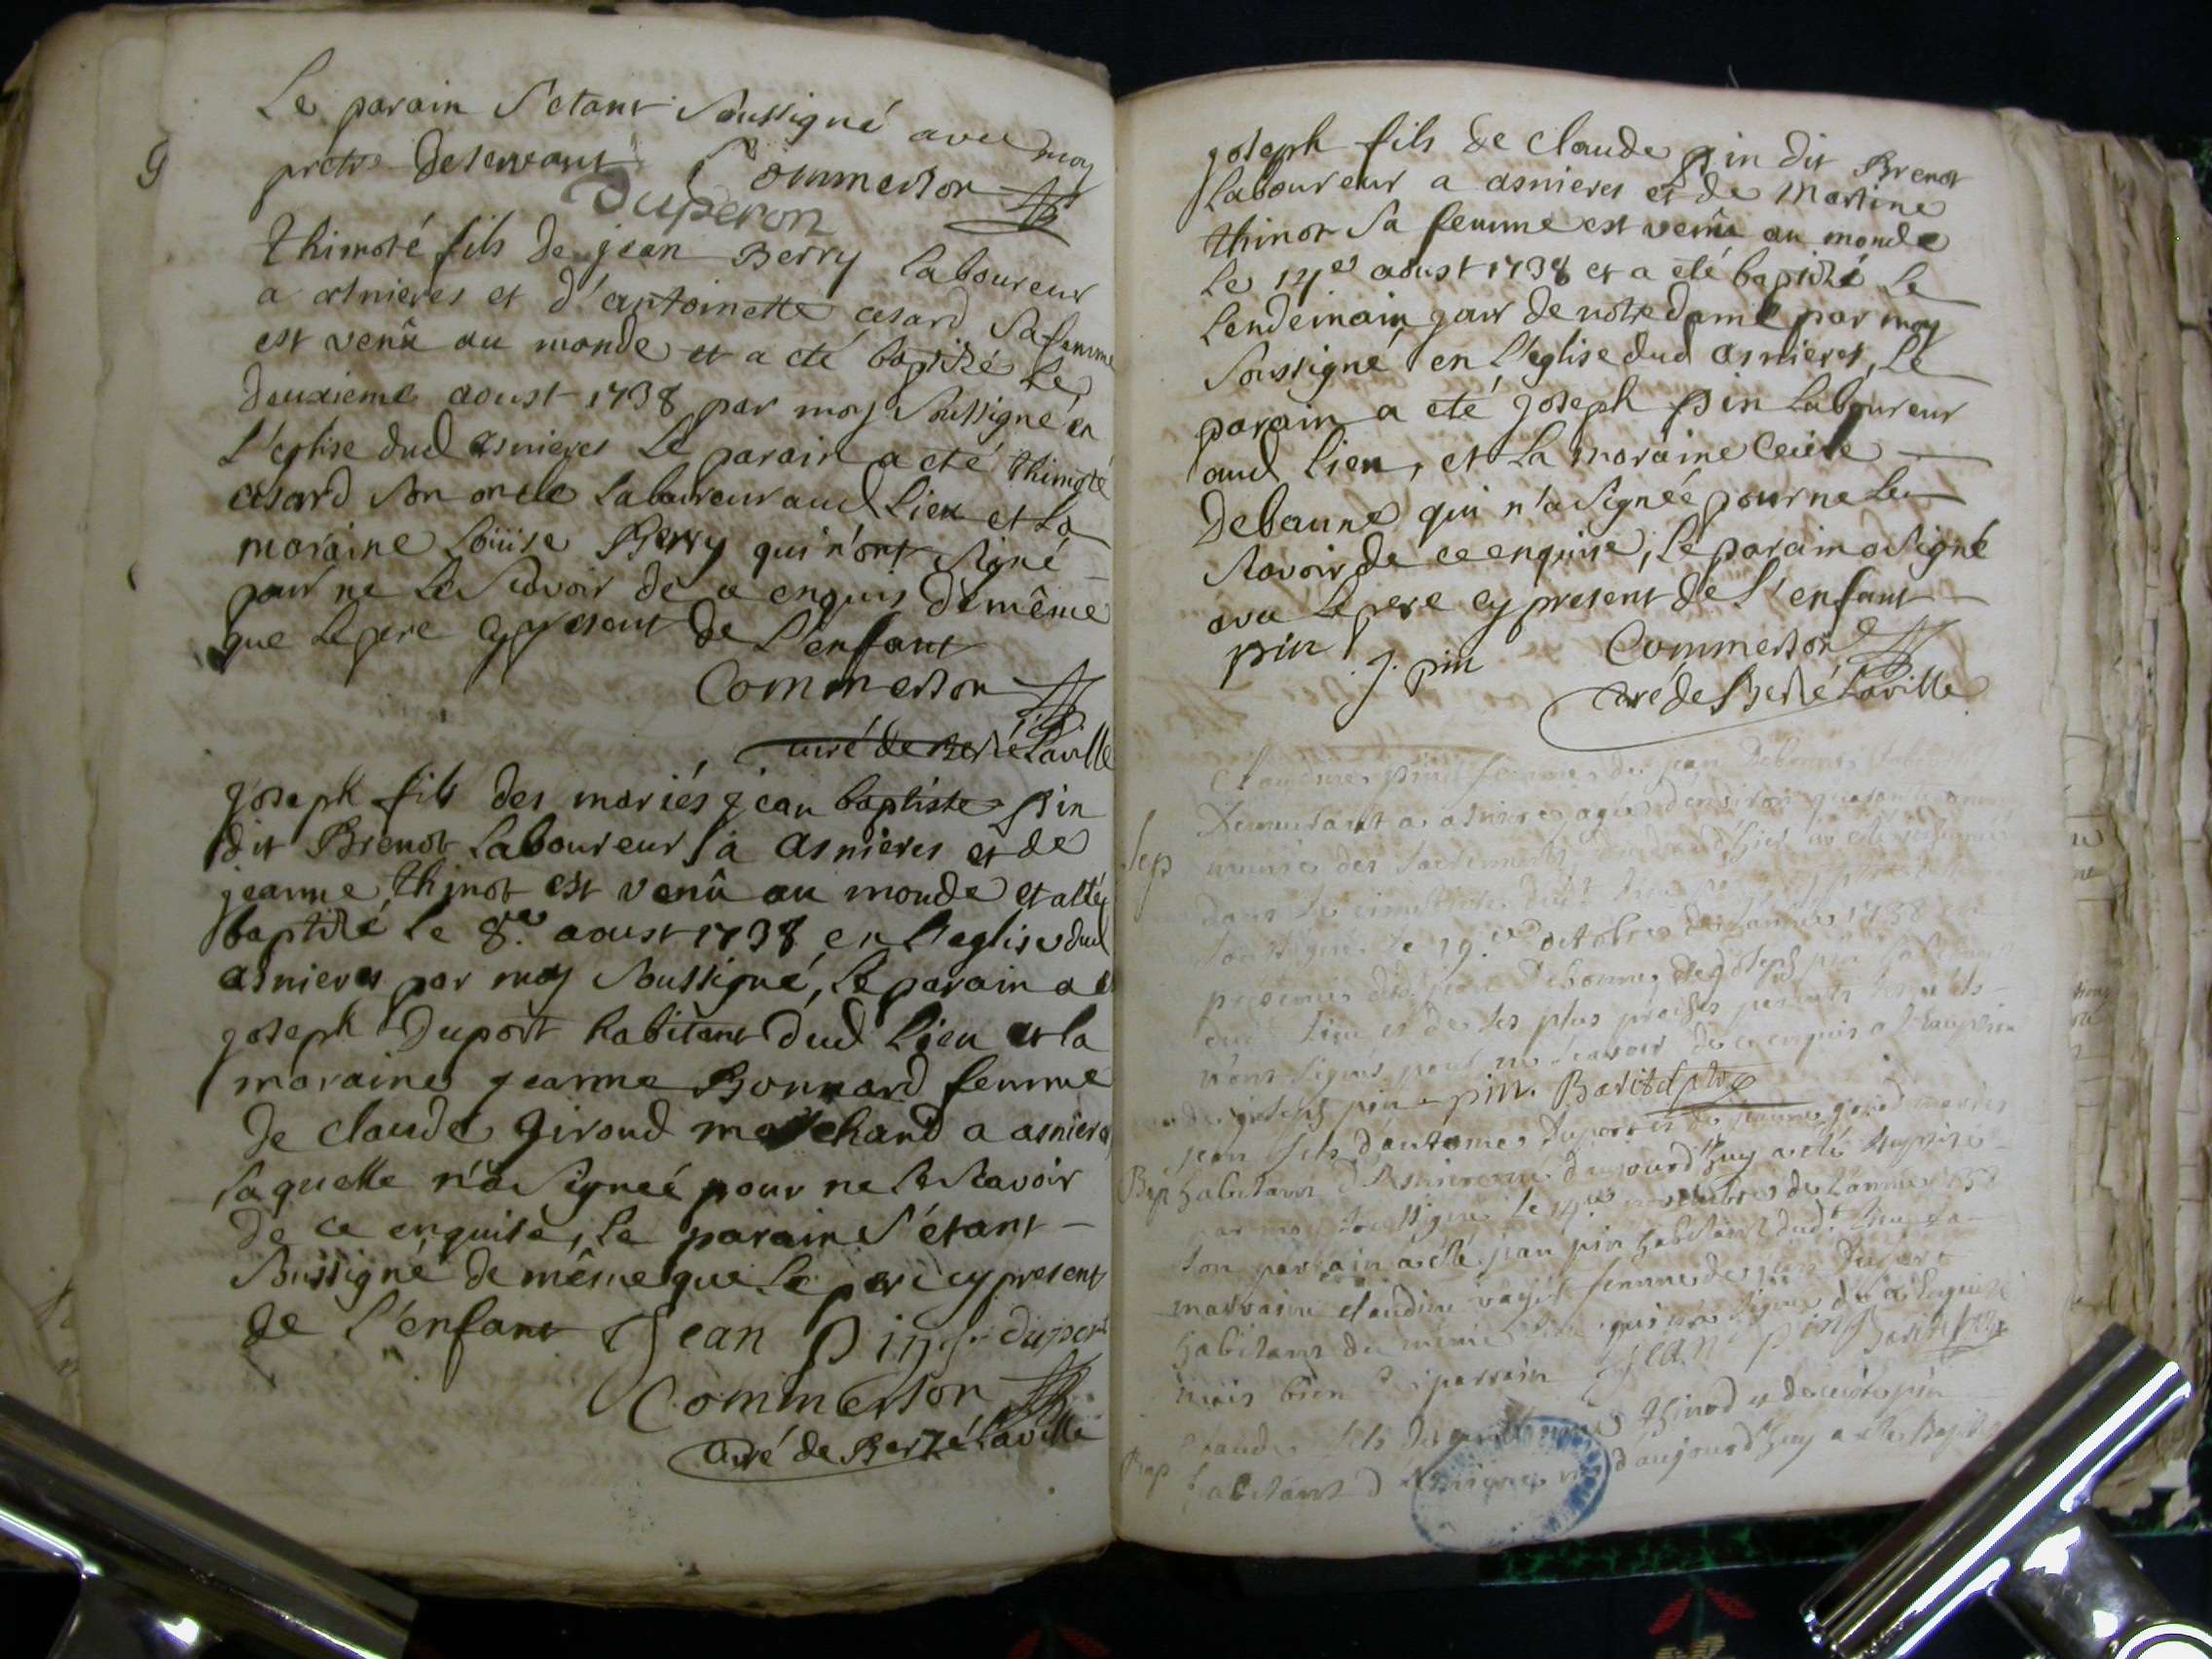 Le parain s'etant soussigné avec moy
pretre deservant Commerson
Duperon
thimoté fils de jean Berry laboureur
a asnieres et d'antoinette cesard sa femme
est venû au monde et a eté baptisé le
deuxieme aoust 1738 par moy soussigné en
l'eglise dud asnieres Le parain a eté thimoté
cesard son oncle laboureur aud lieu et la
maraine loüise Berry qui n'ont siné
pour ne le scavoir de ce enquis de même
que le pere cy present de l'enfant
Commerson
curé de Berzé Laville
joseph fils des mariés jean baptiste pin
dit Brenot laboureur a asnieres et de
jeanne thinot est venû au monde et a eté
baptisé le 8.e aoust 1738 en l'eglise dud
asnieres par moy soussigné, le parain a e
joseph Duport habitant dud lieu et la
maraine jeanne Bonnard femme
de claude giroud marchand a asnieres
laquelle n'a signeé pour ne le scavoir
de ce enquise, le parain s'etant
soussigné de même que le pere cy present
de l'enfant Jean Pin j. duport
Commerson
curé de Berzé Laville
joseph fils de claude pin dit Brenot
laboureur a asnieres et de Martine
thinot sa femme est venû au monde
le 14.e aoust 1738 et a eté baptisé le
lendemain jour de notre dame par moy
soussigné en l'eglise dud asnieres, le
parain a eté joseph pin laboureur
aud lieu, et la maraine Cecile
Debaune qui n'a signéé pour ne le
scavoir de ce enquise, le parain a signé
avec le pere cy present de l'enfant
pin j. pin Commerson
curé de Berzé Laville
Claudine pin femme de jean Debonne
Demeurant a asnieres agée d'environ quarante
Sep munie des sacrements
dans le cimetiere dud
soussigné le 19.e octobre de l'année 1738 en
presence de jean Debonne de joseph pin
dud lieu et de ses plus proches parents lesquels
n'ont signés pour ne scavoir de ce enquis a l'exception
de joseph pin pin. Baritel ptre
jean fils d'antoine duport et de jeanne
Bap habitans d'Asnieres né d'aujourd'huy a eté baptisé
par moy soussigné le 14.e de l'année 1738
son parrain a eté jean pin habitant dud.t lieu sa
marraine claudine femme de jean duport
habitans du même lieu qui n'a signé de ce enquise
mais bien le parrain Jean pin Baritel ptre
claude fils de thinod et de pin
Bap habitans d'Asnieres né d'aujourd'huy a eté Baptisé